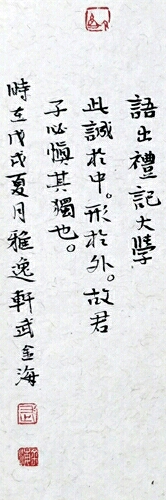 語出禮記大學
此誠於中。形於外。故君
子必慎其獨也。
時在戊戌夏月雅逸軒武金海